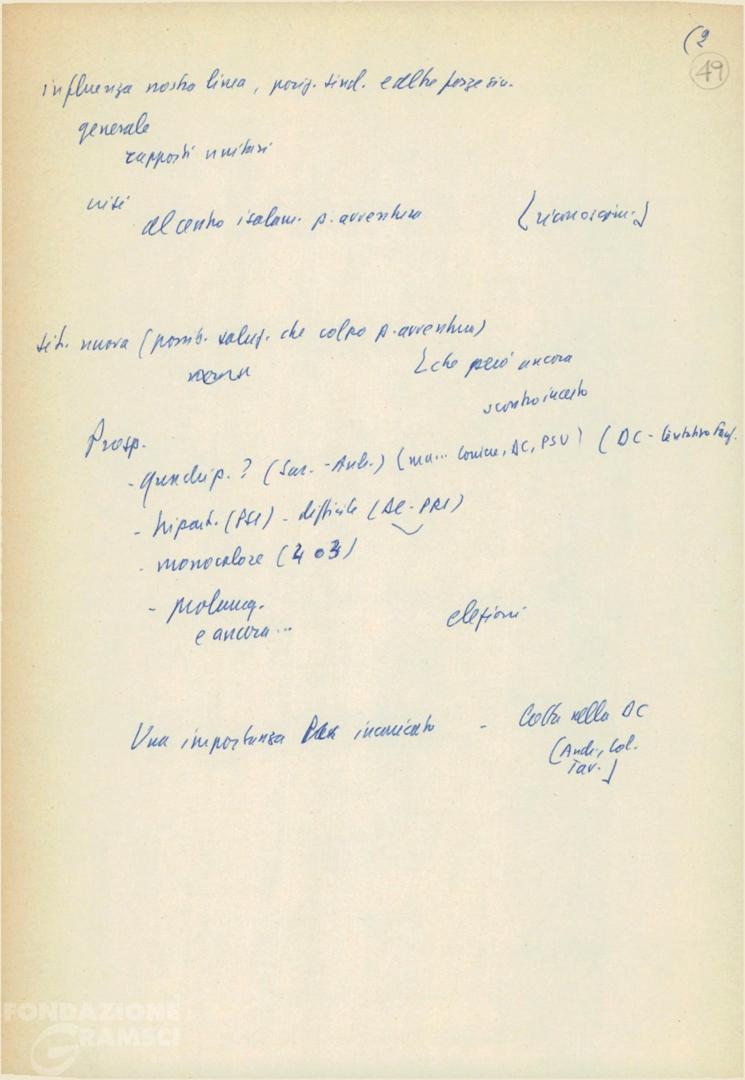 (2
49
influenza nostra linea, posiz. sind. e altre forze sin.
generale
rapporti unitari
crisi
al centro isolam. p. avventura (riconoscim.)
sit. nuova (possib. che colpo p. avventura)
(che però ancora
scontro incerto
Prosp.
- quadrip. ? (Sar. - And.) (ma... Corriere, DC, PSU) (DC - tentativo Fanf.
- tripart. (PSI) - difficile (DC - PRI)
- monocolore (2 o 3)
- prolung. elezioni
e ancora...
Una importanza incaricato - lotta nella DC
(Andr., Col.
Tav.)
FONDAZIONE
GRAMSCI